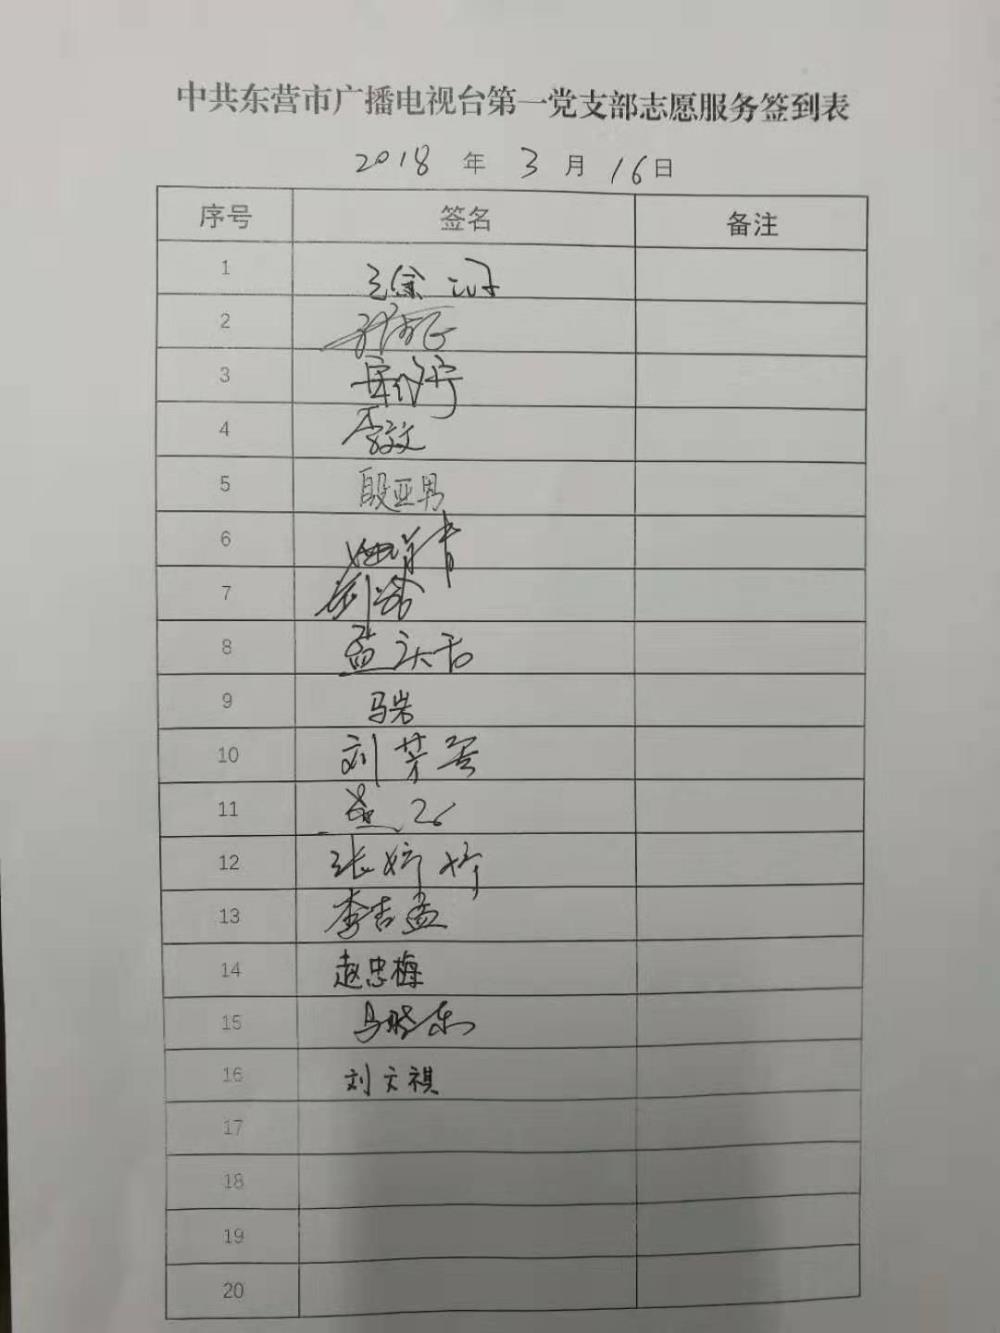 中共东营市广播电视台第一党支部志愿服务签到表
2018 年 3 月 16 日
序号 签名 备注
1
2
3
4 李文
5 段亚男
6
7
8 孟庆云
9 马岩
10 刘芳蕾
11
12 张婷婷
13 李吉孟
14 赵忠梅
15 马晓东
16 刘文祺
17
18
19
20